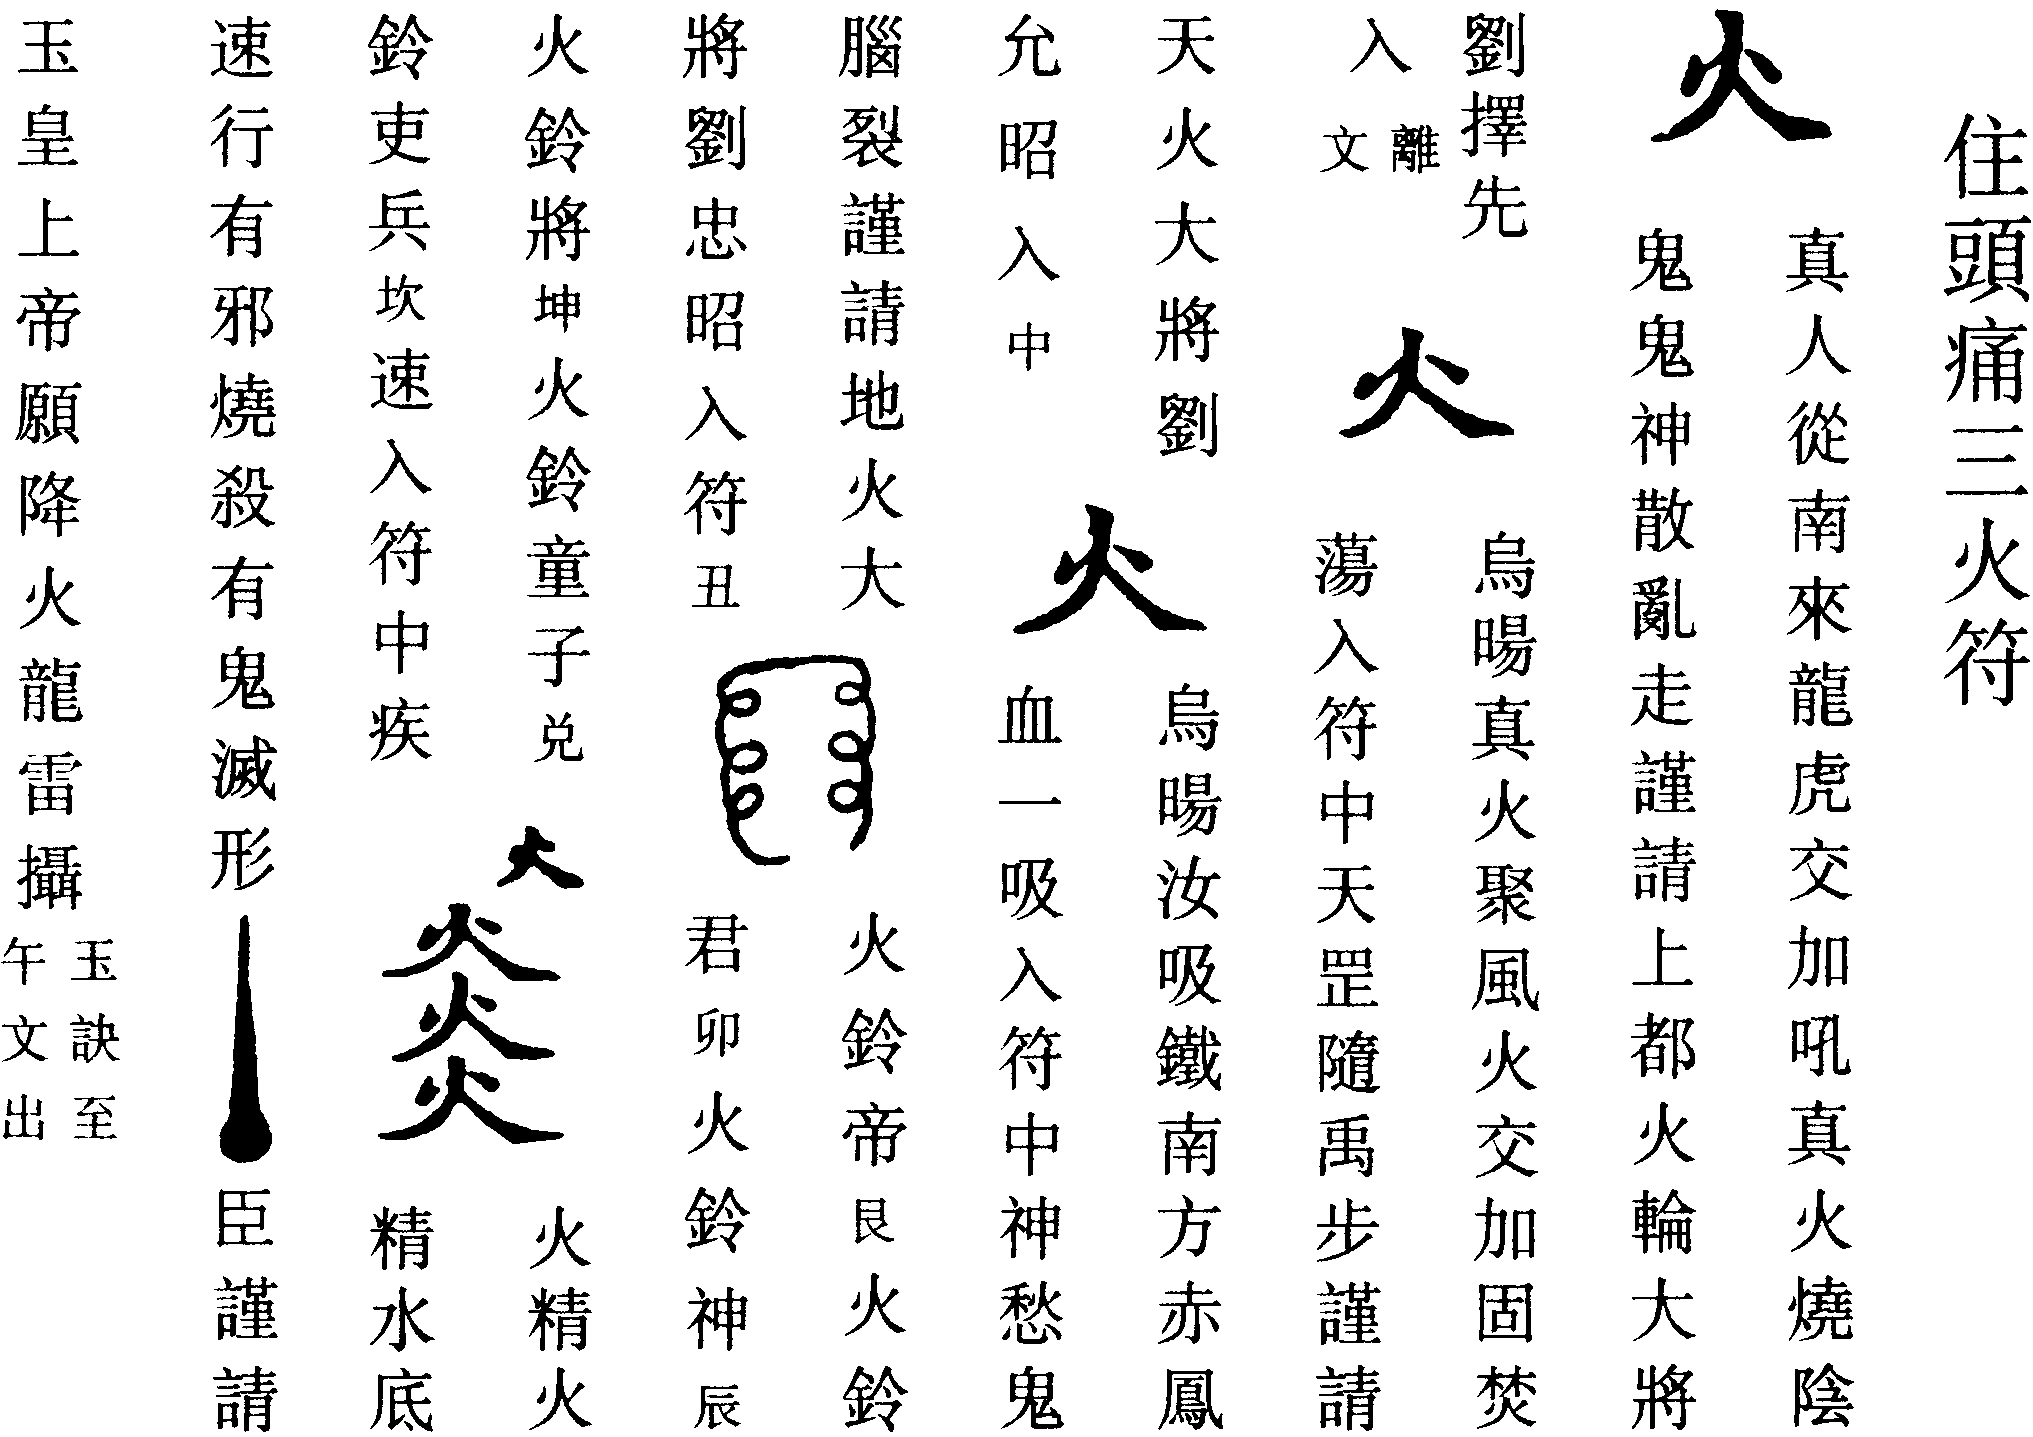 住頭痛三火符
火
真人從南來龍虎交加吼真火燒陰
鬼鬼神散亂走謹請上都火輪大將
劉擇先
入離文
火
烏暘真火聚風火交加固焚
蕩入符中天罡隨禹步謹請
天火大將劉
允昭入中
火
烏暘汝吸鐵南方赤鳳
血一吸入符中神愁鬼
腦裂謹請地火大
將劉忠昭入符丑
火鈴帝艮火鈴
君卯火鈴神辰
火鈴將坤火鈴童子兑
鈴吏兵坎速入符中疾
大火火火
火精火
精水底
速行有邪燒殺有鬼滅形
臣謹請
玉皇上帝願降火龍雷攝
玉訣至
午文出